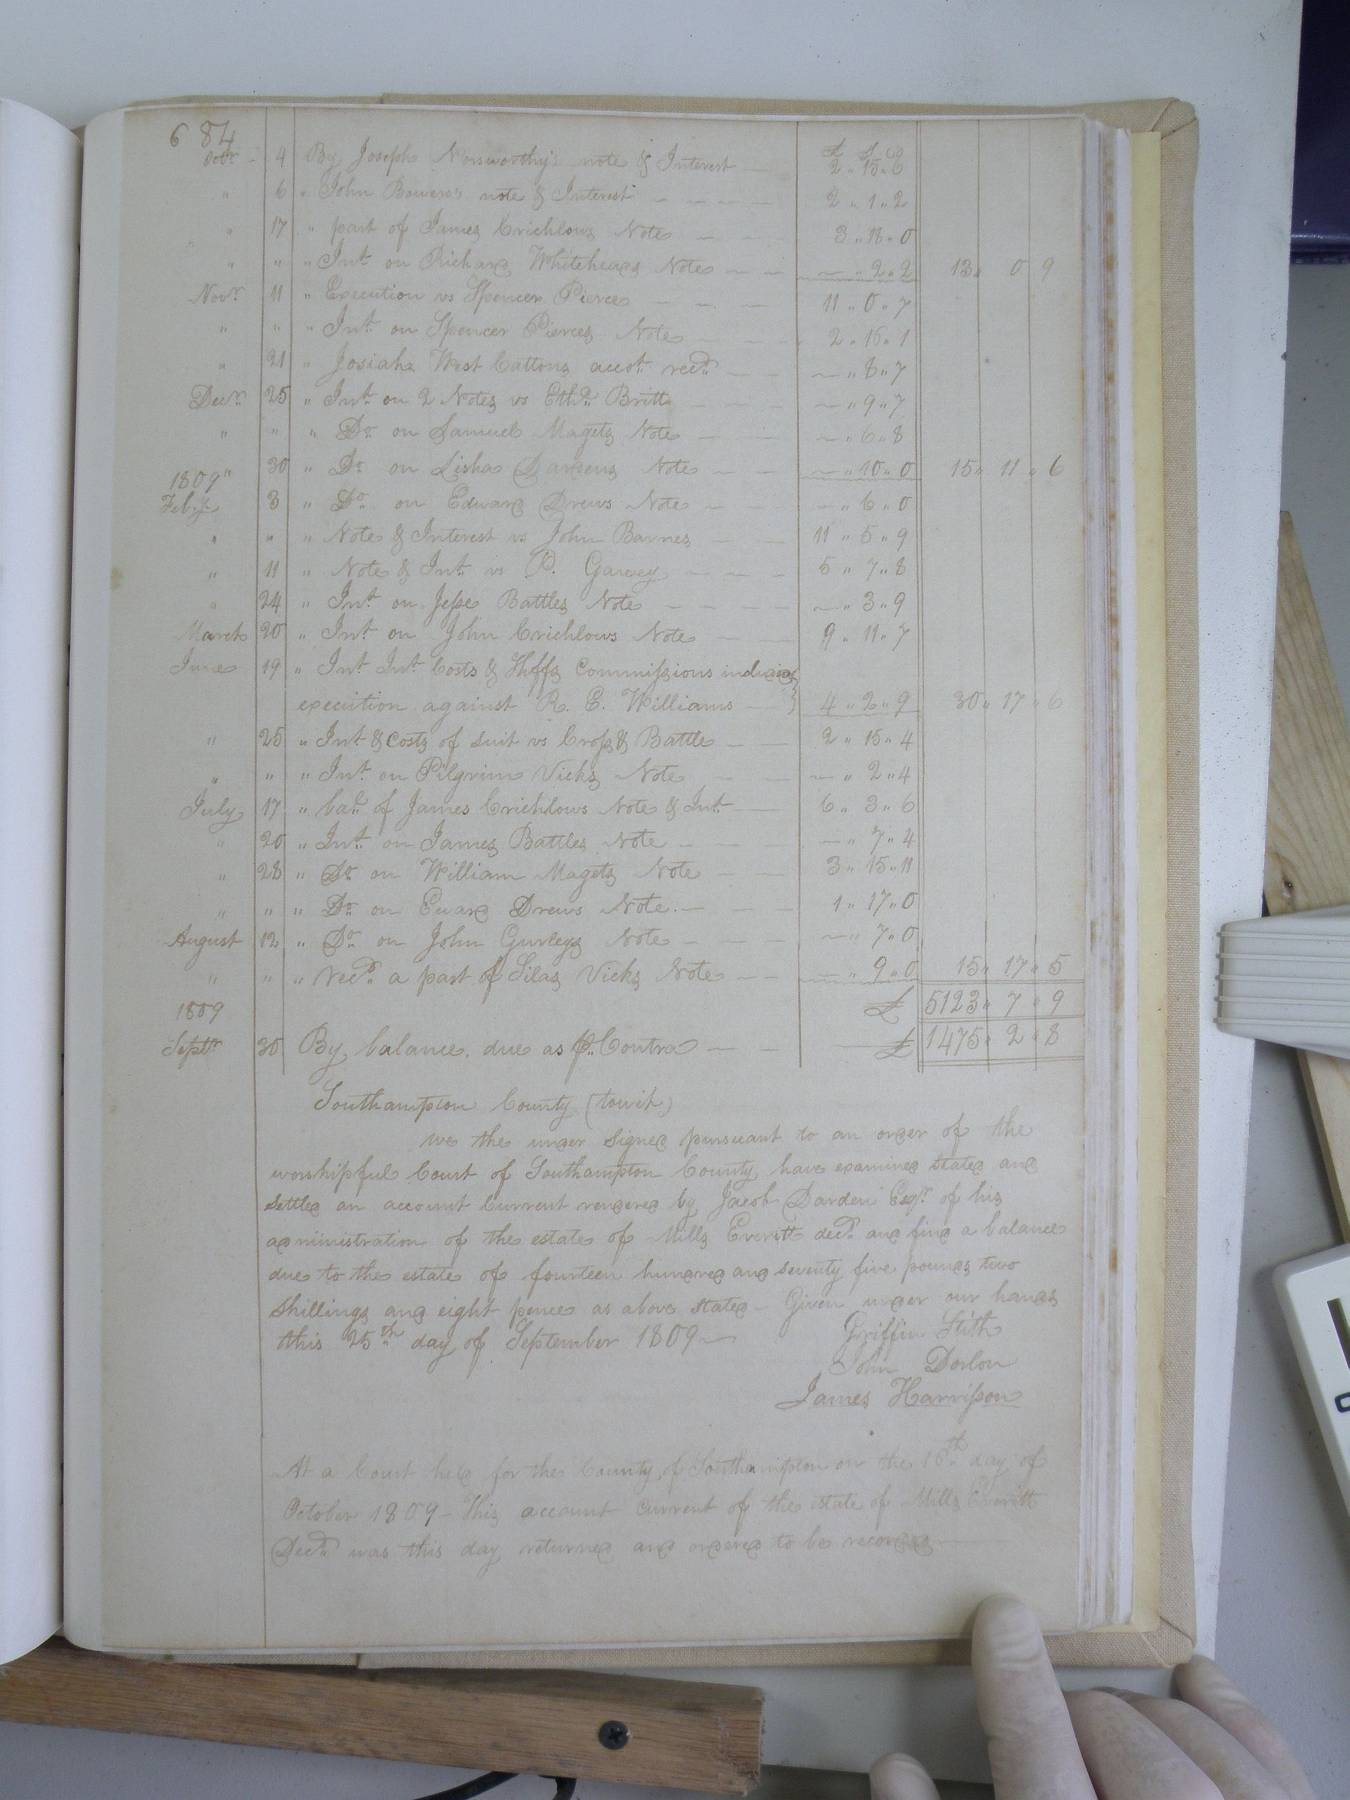 684
£ S D
Octr. 4 By Joseph Norsworthy's note & Interest — 2 " 15 " 6
" 6 " John Bowers note & Interest — — — — 2 " 1 " 2
" 17 " part of James Crichlows Note — — — 3 " 18 " 0
" " " Int. on Richard Whiteheads Note — — — " 2 " 2 13 " 0 9
Novr. 11 " Execution vs Spencer Pierce — — — 11 " 0 " 7
" " " Int. on Spencer Pierces Note — — — 2 " 16 " 1
" 21 " Josiah West Cattons accot. recd. — — — " 8 " 7
Decr. 25 " Int. on 2 Notes vs Ethd. Britt — — — " 9 " 7
" " " Do. on Samuel Magets Note — — — " 6 " 8
" 30 " Do. on Lisha Dardens Note — — — " 10 " 0 15 " 11 " 6
1809
Feby. 3 " Do. on Edward Drews Note — — — " 6 " 0
" " " Note & Interest vs John Barnes — — 11 " 5 " 9
" 11 " Note & Int. vs P. Garvey — — — 5 " 7 " 8
" 24 " Int. on Jesse Battles Note — — — — " 3 " 9
March 20 " Int. on John Crichlows Note — — — 9 " 11 " 7
June 19 " Int. Int. Costs & Shffs Commissions
execution against R. E. Williams — 4 " 2 " 9 30 " 17 " 6
" 25 " Int & Costs of suit vs Cross & Battle — — 2 " 15 " 4
" " " Int. on Pilgrim Vicks Note — — — " 2 " 4
July 17 " bal. of James Crichlows Note & Int. — 6 " 3 " 6
" 20 " Int. on James Battles Note — — — — " 7 " 4
" 28 " Do. on William Magets Note — — 3 " 15 " 11
" " " Do. on Eward Drews Note. — — — 1 " 17 " 0
August 12 " Do. on John Gurleys Note — — — — " 7 " 0
" " " Recd. a part of Silas Vicks Note — — — " 9 " 0 15 " 17 " 5
1809 £ 5123 " 7 " 9
Septr. 30 By balance due as pr. Contra — — £ 1475 " 2 " 8
Southampton County (towit)
We the under signed pursuant to an order of the
worshipful Court of Southampton County have examined stated and
settled an account Current rendered by Jacob Darden Esqr. of his
administration of the estate of Mills Everitt decd. and find a balance
due to the estate of fourteen hundred and seventy five pounds two
shillings and eight pence as above stated — Given under our hands
this 25th day of September 1809 —
Griffin Stith
John Dorlon
James Harrisson
At a Court held for the County of Southampton on the 16th day of
October 1809 — This account current of the estate of Mills Everitt
Decd. was this day returned and ordered to be recorded —